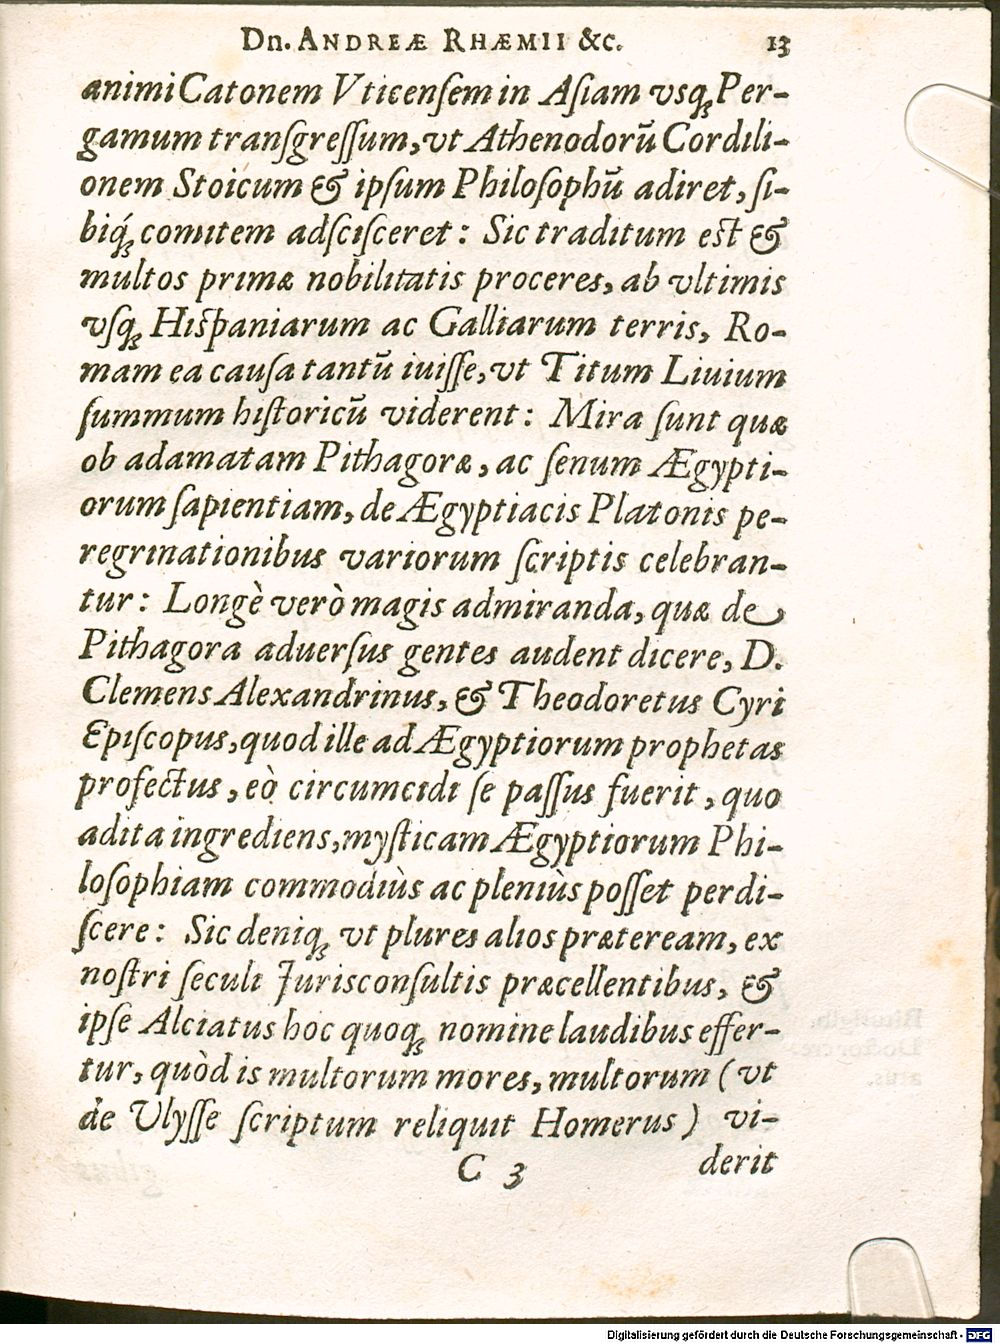 Dn. ANDREÆ RHÆMII &c. 13
animi Catonem Vticenſem in Aſiam vsq́ꝫ Per-
gamum tranſgreſſum, vt Athenodorū Cordili-
onem Stoicum & ipſum Philoſophū adiret, ſi-
biq́ꝫ comitem adſciſceret: Sic traditum eſt &
multos primæ nobilitatis proceres, ab vltimis
vſqꝫ Hiſpaniarum ac Galliarum terris, Ro-
mam ea cauſa tantū iuiſſe, vt Titum Liuium
ſummum hiſtoricū viderent: Mira ſunt quæ
ob adamatam Pithagoræ, ac ſenum Ægypti-
orum ſapientiam, de Ægyptiacis Platonis pe-
regrinationibus variorum ſcriptis celebran-
tur: Longè verò magis admiranda, quæ de
Pithagora aduerſus gentes audent dicere, D.
Clemens Alexandrinus, & Theodoretus Cyri
Epiſcopus, quod ille ad Ægyptiorum prophetas
profectus, eò circumcidi ſe paſſus fuerit, quo
adita ingrediens, myſticam Ægyptiorum Phi-
loſophiam commodiùs ac pleniùs poſſet perdi-
ſcere: Sic deniqꝫ vt plures alios præteream, ex
noſtri ſeculi Jurisconſultis præcellentibus, &
ipſe Alciatus hoc quoqꝫ nomine laudibus effer-
tur, quòd is multorum mores, multorum (vt
de Ulyſſe ſcriptum reliquit Homerus) vi-
C 3 derit
Digitalisierung gefördert durch die Deutsche Forschungsgemeinschaft - DFG